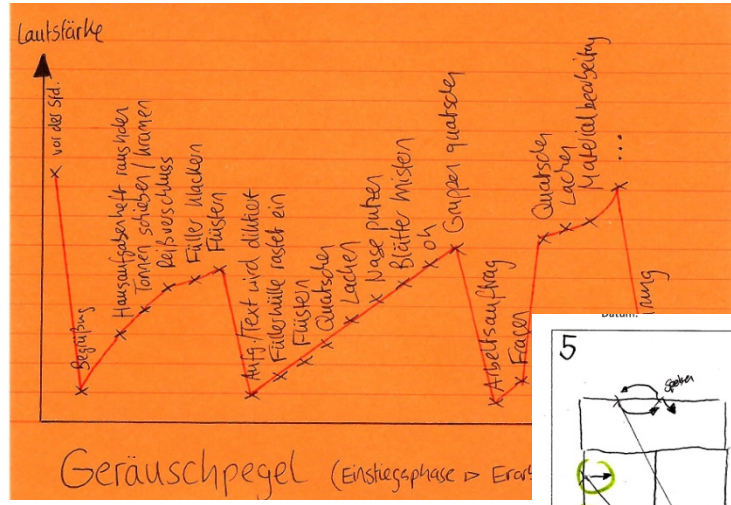 Lautstärke
vor der Std.
Begrüßung
Hausaufgabenheft rausholen
Tonnen schieben / kramen
Reißverschluss
Füller klacken
Flüstern
Aufg./Text wird diktiert
Füllerhülle rastet ein
Flüstern
Quatschen
Lachen
Nase putzen
Blätter knistern
oh
Gruppen quatschen
Arbeitsauftrag
Fragen
Quatschen
Lachen
Materialbearbeitung
...
rung
Datum:
5
Geräuschpegel (Einstiegsphase ▷ Erarb